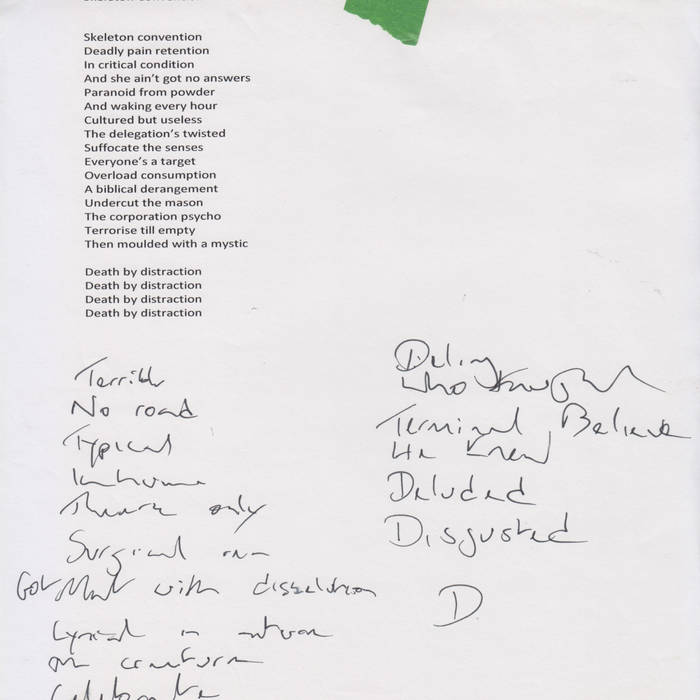 Skeleton convention
Deadly pain retention
In critical condition
And she ain't got no answers
Paranoid from powder
And waking every hour
Cultured but useless
The delegation's twisted
Suffocate the senses
Everyone's a target
Overload consumption
A biblical derangement
Undercut the mason
The corporation psycho
Terrorise till empty
Then moulded with a mystic
Death by distraction
Death by distraction
Death by distraction
Death by distraction
Terrible
No road
Typical
only
Surgical
Got with
Lyrical
Who
Terminal Believe
He knew
Deluded
Disgusted
D.